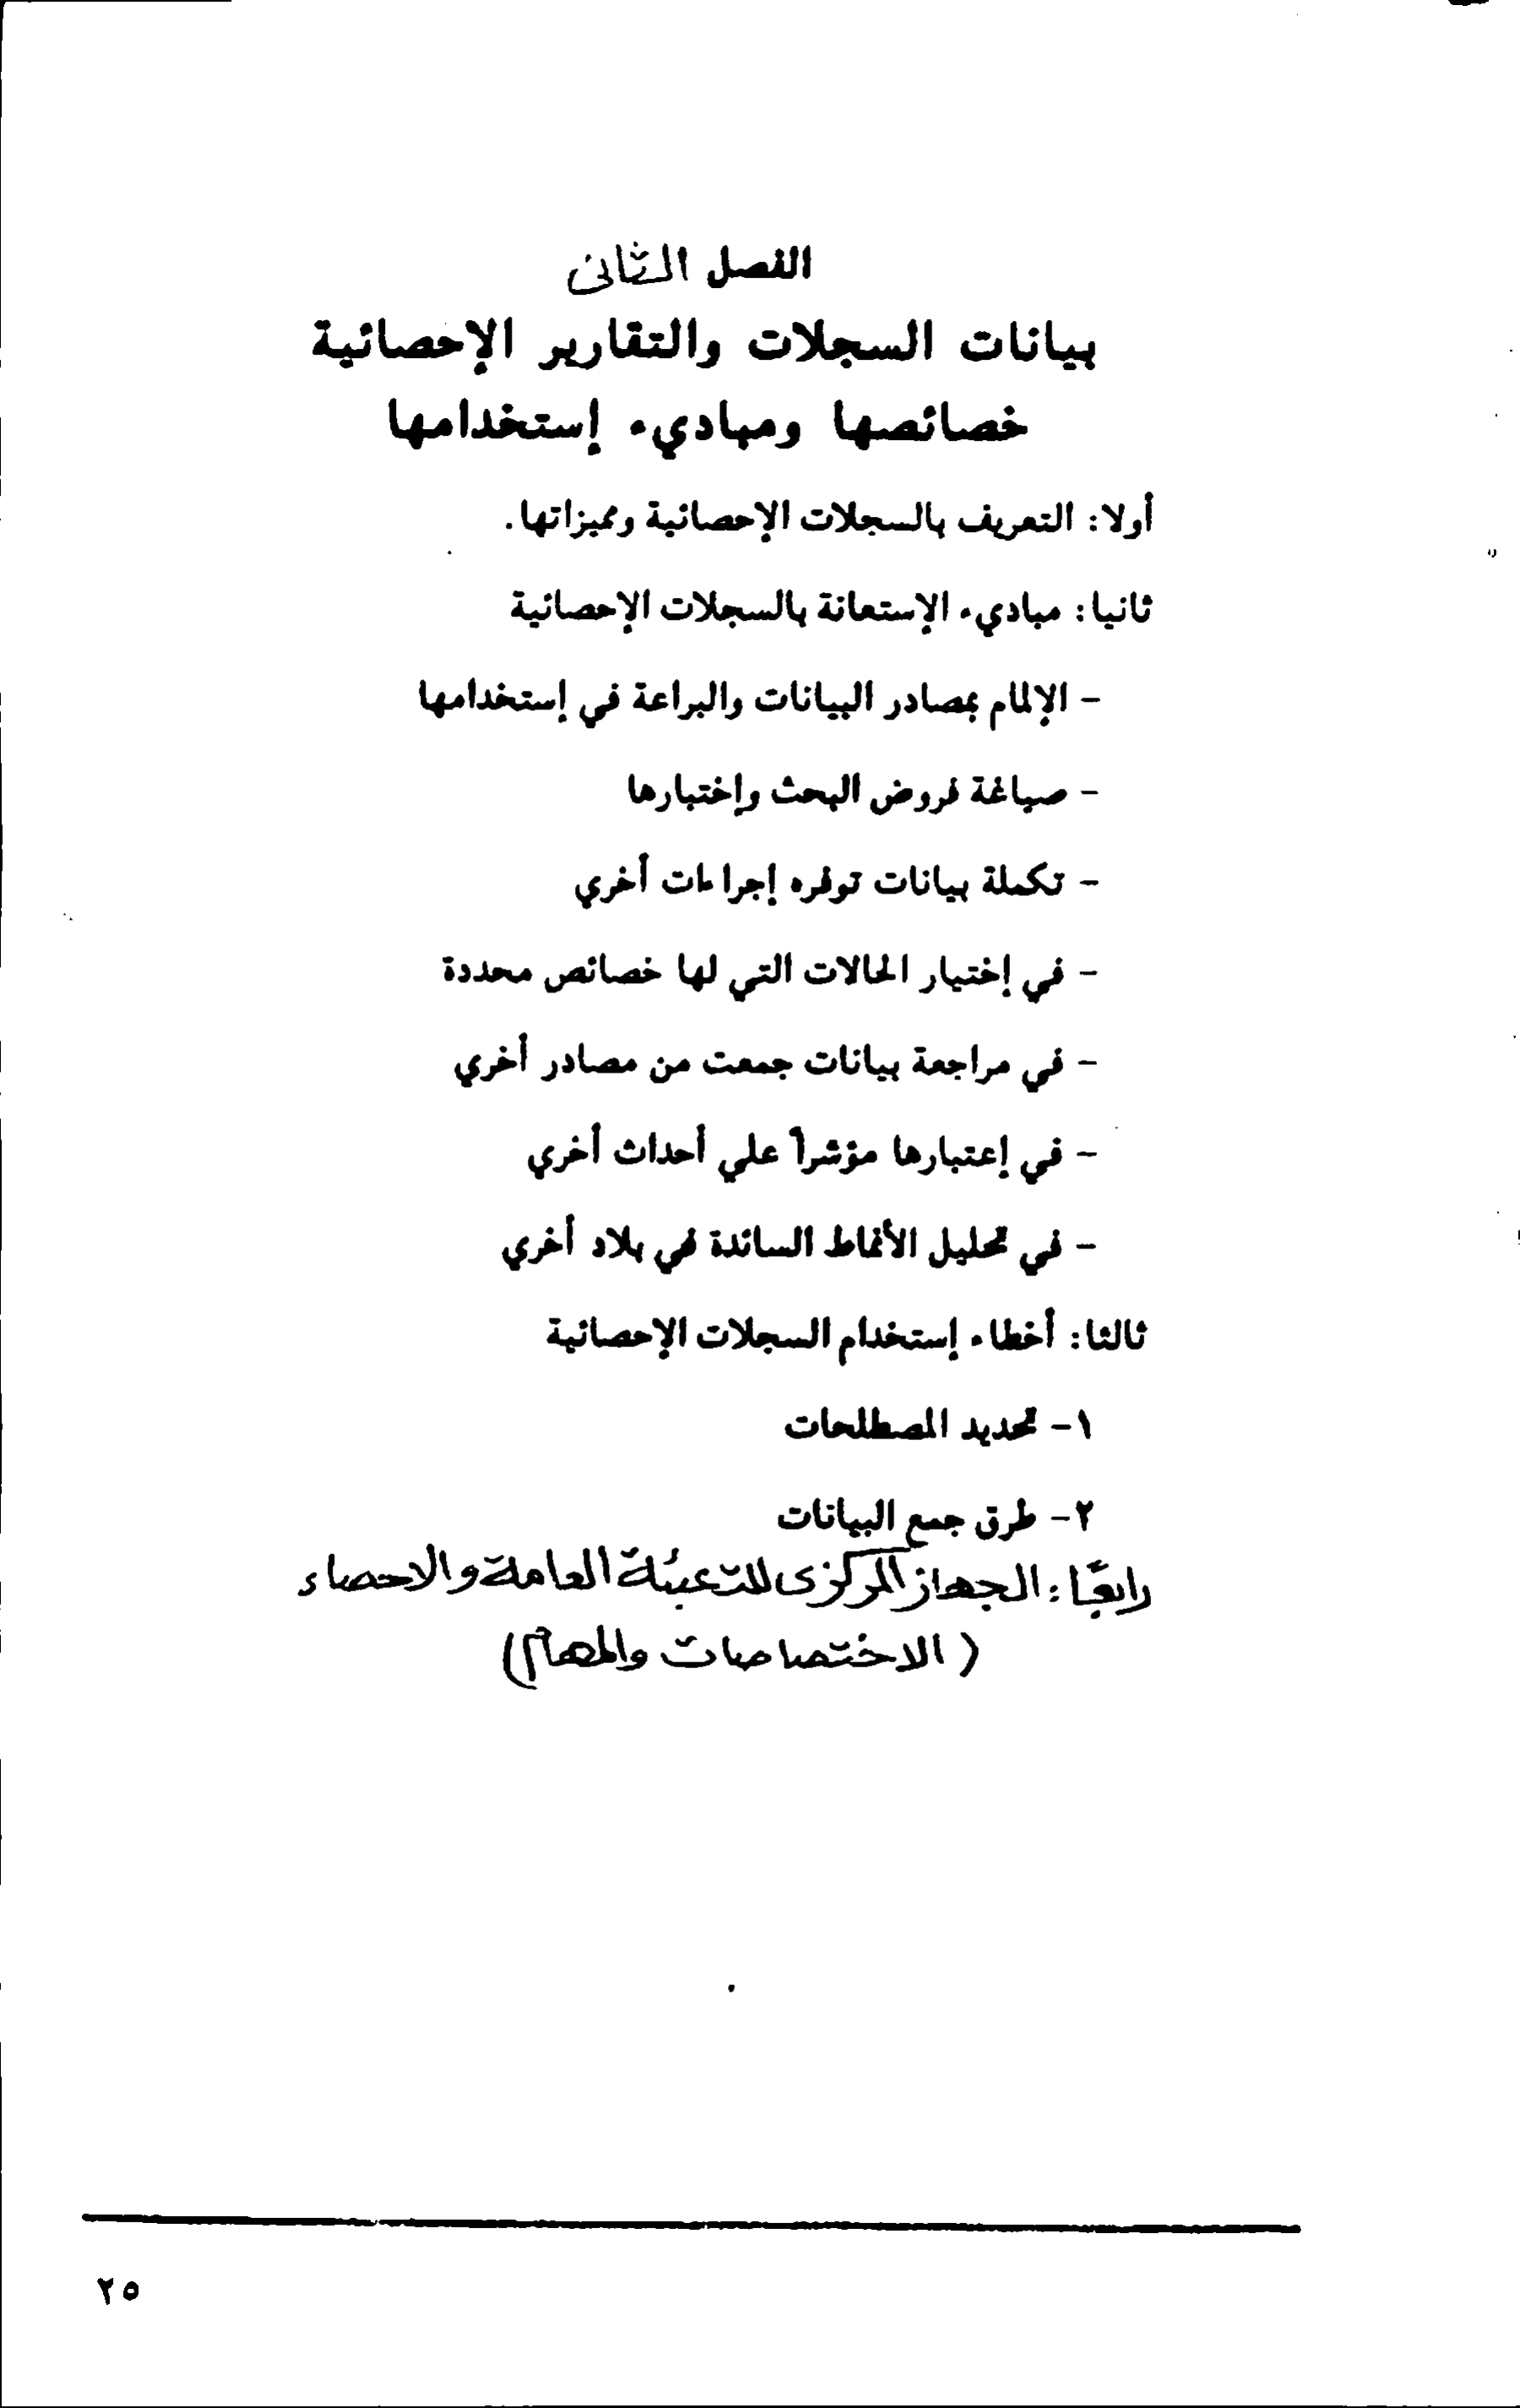 الفصل الثانى
بيانات السجلات والتقارير الإحصائية
خصائصها ومباديء إستخدامها
أولا: التعريف بالسجلات الإحصائية ومميزاتها.
ثانيا: مباديء الإستعانة بالسجلات الإحصائية
- الإلمام بمصادر البيانات والبراعة في إستخدامها
- صياغة فروض البحث وإختبارها
- تكملة بيانات توفره إجراءات أخري
- في إختيار الحالات التي لها خصائص محددة
- في مراجعة بيانات جمعت من مصادر أخري
- في إعتبارها مؤشراً علي أحداث أخري
- في تحليل الأنماط السائدة في بلاد أخري
ثالثا: أخطاء إستخدام السجلات الإحصائية
١- تحديد المصطلحات
٢- طرق جمع البيانات
رابعًا: الجهاز المركزى للتعبئة العامة والاحصاء
(الاختصاصات والمهام)
٢٥